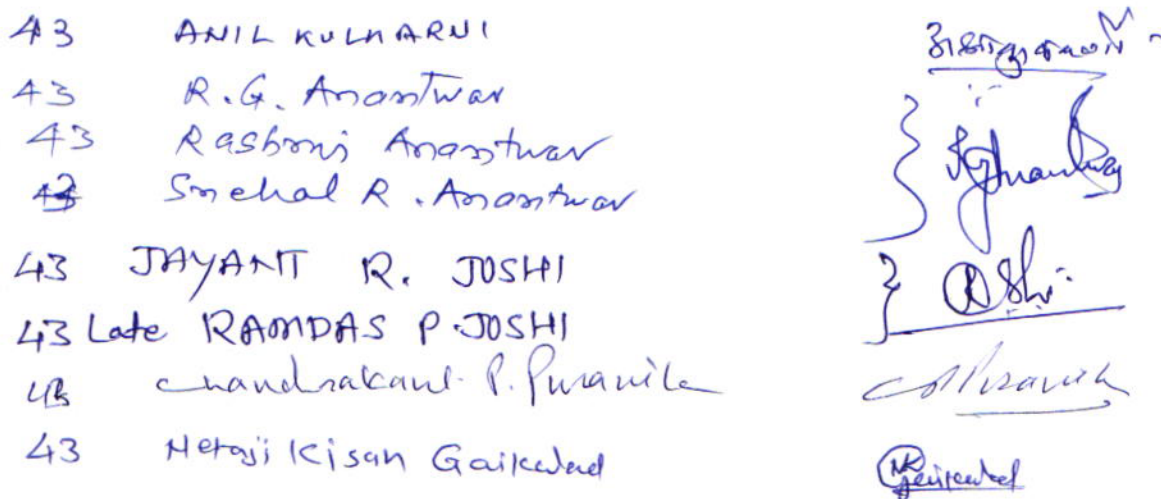 43 ANIL KULKARNI
43 R.G. Anantwar
43 Rashmi Anantwar
43 Snehal R. Anantwar
43 JAYANT R. JOSHI
43 Late RAMDAS P. JOSHI
43 Chandrakant P. Puranik
43 Netaji Kisan Gaikwad